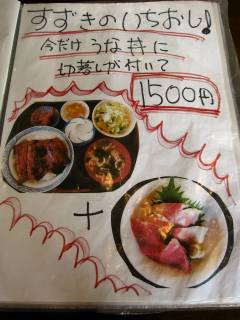 すずきのいちおし!
今だけうな丼に
切落しが付いて
1500円
+